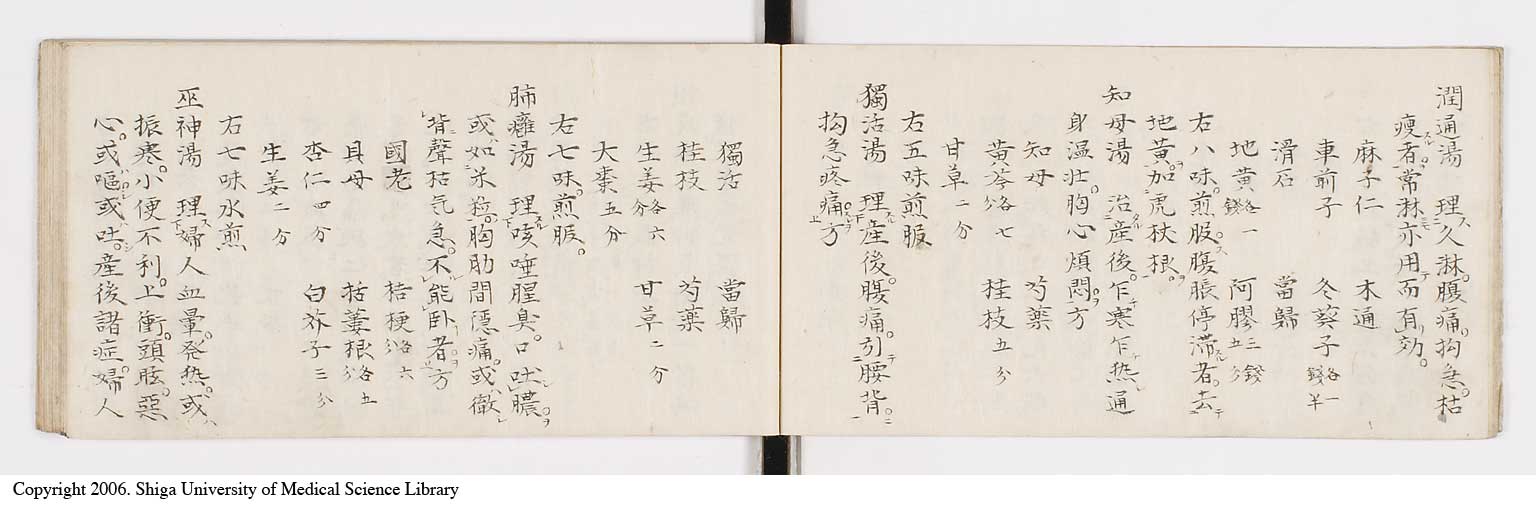 潤通湯　理久淋。腹痛。拘急。枯
痩者。常淋亦用而有効。
麻子仁　木通
車前子　冬葵子各一錢半
滑石　當歸
地黄各一錢　阿膠三錢五分
右八味。煎服。腹脹停滯者。去
地黄。加虎杖根。
知母湯　治産後。乍寒乍热通
身温壮。胸心煩悶。方
知母　芍藥
黄芩各七分　桂枝五分
甘草二分
右五味煎服
獨活湯　理産後。腹痛。引腰背。
拘急疼痛。方
獨活　當歸
桂枝　芍藥
生姜各六分　甘草二分
大棗五分
右七味。煎服。
肺癰湯　理咳唾腥臭。口吐膿。
或如米粒。胸肋間隱痛。或徹
背聲枯気急。不能卧者。方
國老　桔梗各六分
貝母　括蔞根各五分
杏仁四分　白芥子三分
生姜二分
右七味水煎
巫神湯　理婦人血暈。発热。或
振寒。小便不利。上衝。頭眩。惡
心。或嘔或吐。産後諸症。婦人
Copyright 2006. Shiga University of Medical Science Library